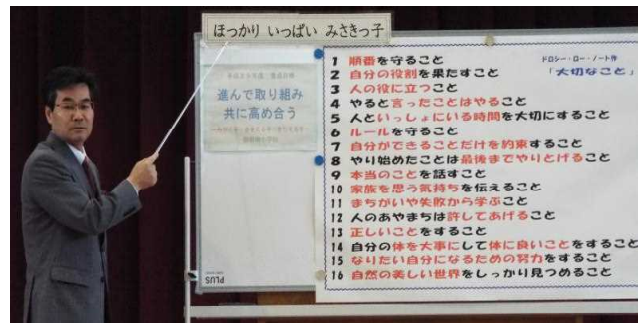 ほっかり いっぱい みさきっ子
進んで取り組み
共に高め合う
ドロシー・ロー・ノート作
「大切なこと」
1 順番を守ること
2 自分の役割を果たすこと
3 人の役に立つこと
4 やると言ったことはやること
5 人といっしょにいる時間を大切にすること
6 ルールを守ること
7 自分ができることだけを約束すること
8 やり始めたことは最後までやりとげること
9 本当のことを話すこと
10 家族を思う気持ちを伝えること
11 まちがいや失敗から学ぶこと
12 人のあやまちは許してあげること
13 正しいことをすること
14 自分の体を大事にして体に良いことをすること
15 なりたい自分になるための努力をすること
16 自然の美しい世界をしっかり見つめること
PLUS